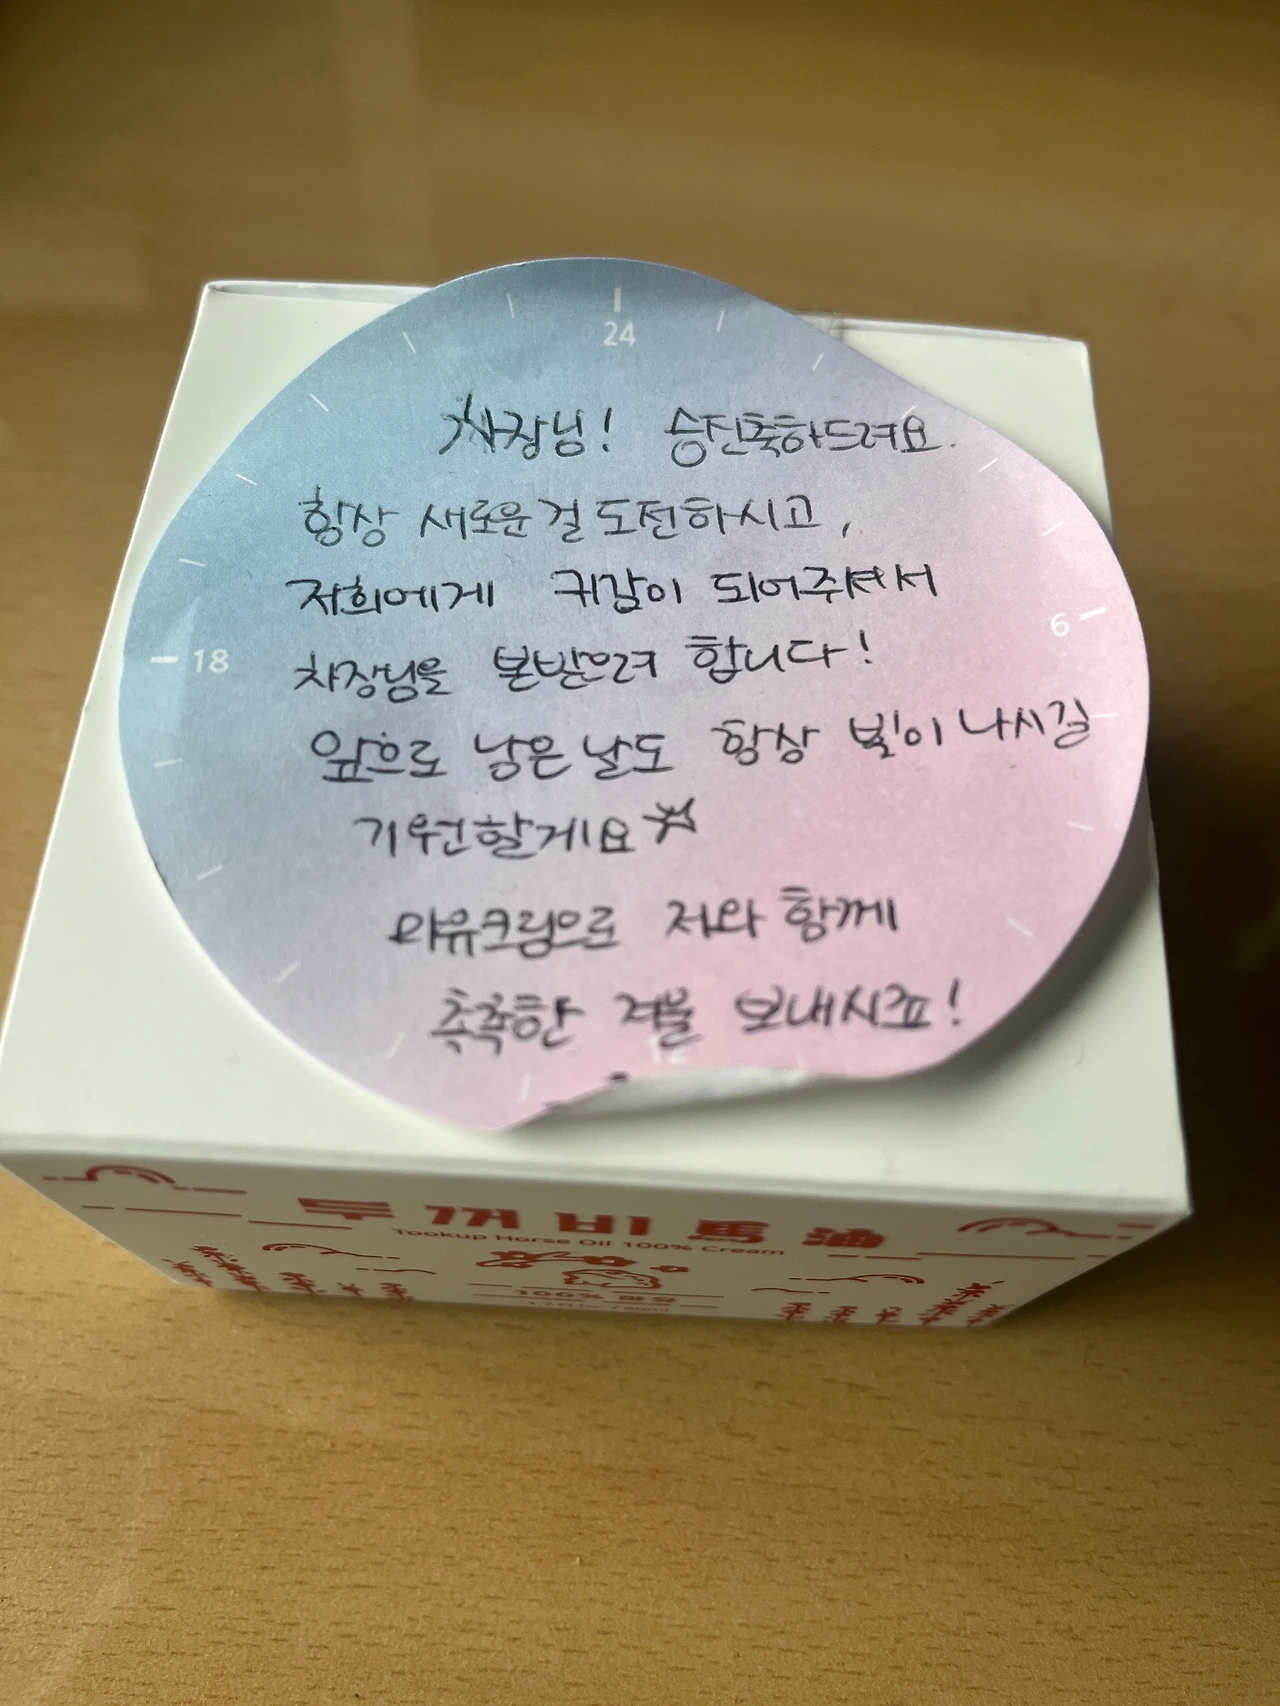 24
차장님! 승진축하드려요.
항상 새로운걸 도전하시고,
저희에게 귀감이 되어주셔서
18
6
차장님을 본받으려 합니다!
앞으로 남은 날도 항상 빛이 나시길
기원할게요
마유크림으로 저와 함께
촉촉한 겨울 보내시죠!
12
두꺼비馬油
Tookup Horse Oil 100% Cream
100% 마유